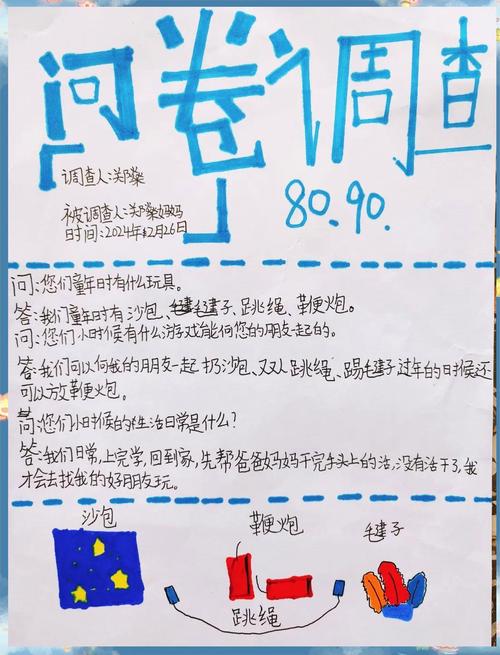 问卷调查
80.90.
调查人:郑燊
被调查人:郑燊妈妈
时间:2024年2月26日
问:您们童年时有什么玩具。
答:我们童年时有沙包、毽子、跳绳、鞭炮。
问:您们小时候有什么游戏能何您的朋友一起的。
答:我们可以何我的朋友一起扔沙包、双人跳绳、踢毽子过年的时候还
可以放鞭炮。
问:您们小时候的性活日常是什么?
答:我们日常,上完学,回到家,先帮爸爸妈妈干完手头上的活,没有活干了,我
才会去找我的好朋友玩。
沙包
鞭炮
毽子
跳绳